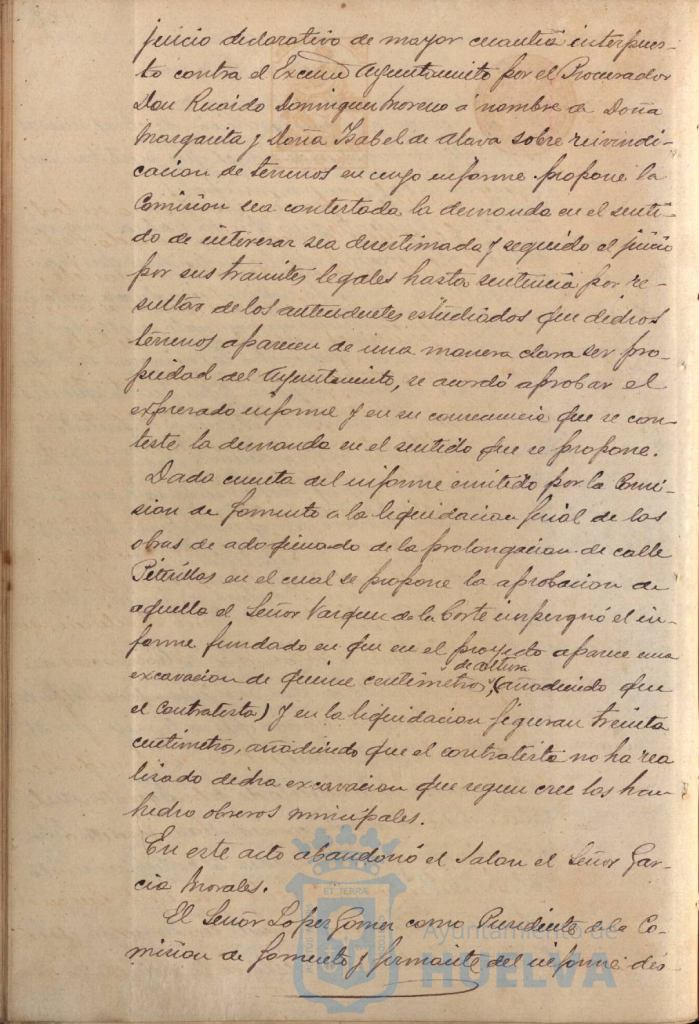 juicio declarativo de mayor cuantia interpues-
to contra el Excmo Ayuntamiento por el Procurador
Don Ricardo Dominguez Moreno á nombre de Doña
Margarita y Doña Isabel de Alava sobre reivindi-
cacion de terrenos en cuyo informe propone la
Comision sea contestada la demanda en el senti-
do de interesar sea desestimada y seguido el juicio
por sus tramites legales hasta sentencia por re-
sultar de los antecedentes estudiados que dichos
terrenos aparecen de una manera clara ser pro-
piedad del Ayuntamiento, se acordó aprobar el
expresado informe y en su consecuencia que se con-
teste la demanda en el sentido que se propone.
Dada cuenta del informe emitido por la Comi-
sion de fomento a la liquidacion final de las
obras de adoquinado de la prolongacion de calle
Peterillas en el cual se propone la aprobacion de
aquella el Señor Vazquez de la Corte impugnó el in-
forme fundado en que en el proyecto aparece una
de altura
excavacion de quince centimetros, (añadiendo que
el Contratista) y en la liquidacion figuran treinta
centimetros, añadiendo que el contratista no ha rea
lizado dicha excavacion que segun cree las han
hecho obreros municipales.
En este acto abandonó el Salon el Señor Gar-
cia Morales.
El Señor Lopez Gomez como Presidente de la Co-
mision de fomento y firmante del informe des
ET TERRAE
Ayuntamiento de
HUELVA